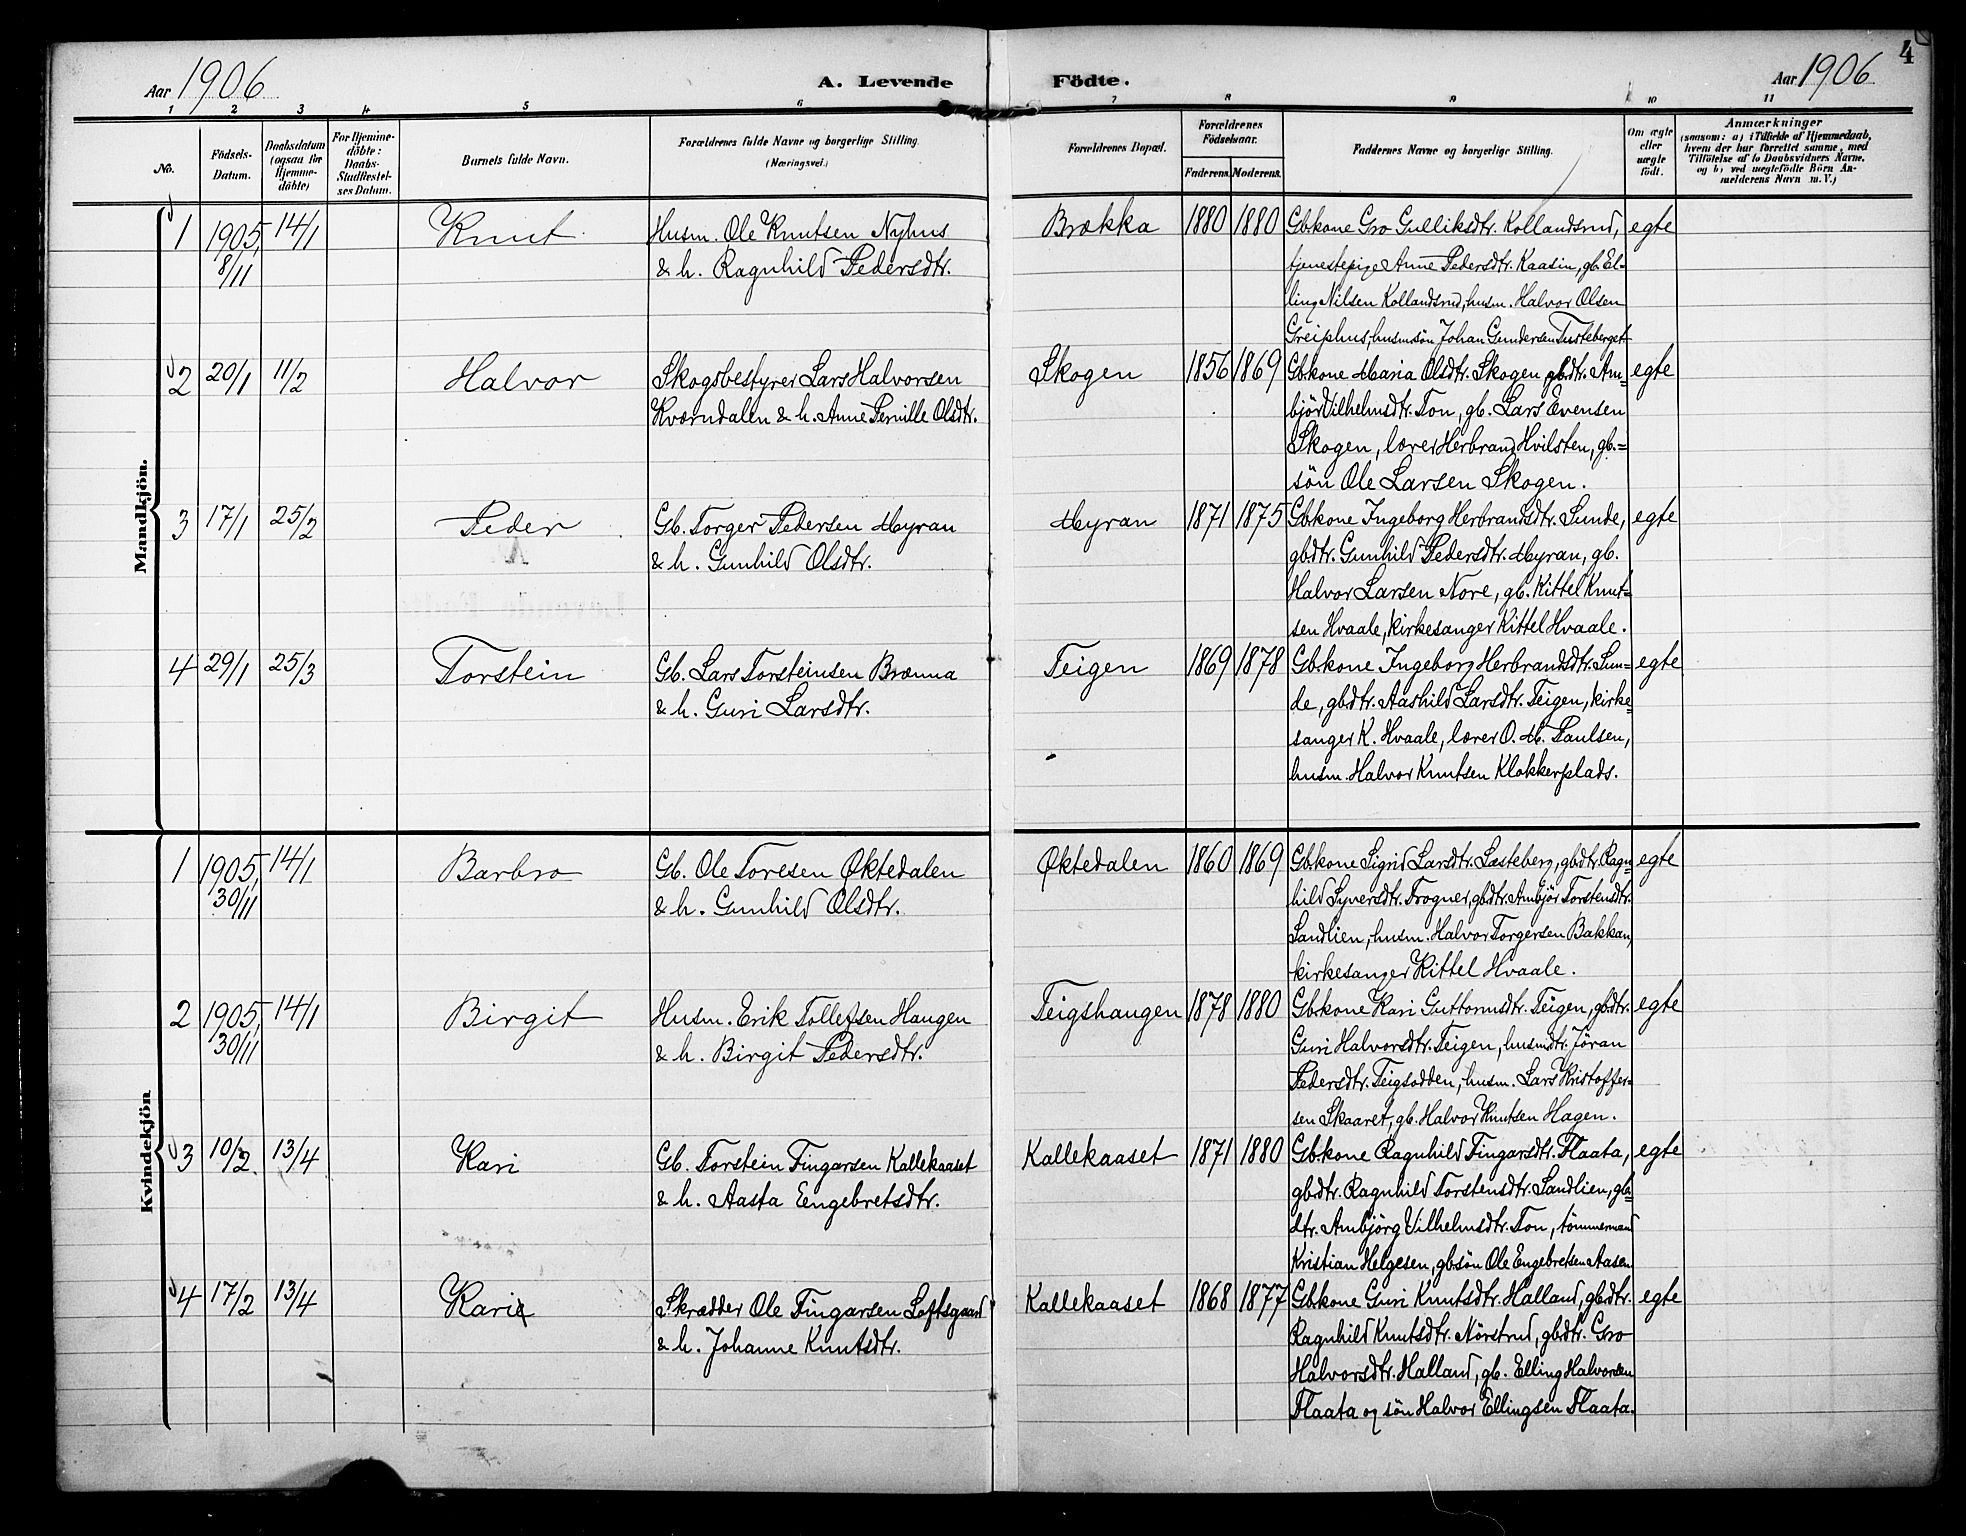 4
Aar 1906 A. Levende Födte. Aar 1906
1 2 3 4 5 6 7 8 9 10 11
No.
Födsels-
Datum.
Daabsdatum
(ogsaa for
Hjemme-
döbte)
For Hjemme-
döbte:
Daabs-
Stadfæstel-
ses Datum.
Barnets fulde Navn.
Forældrenes fulde Navne og borgerlige Stilling.
(Næringsvei.)
Forældrenes Bopæl.
Forældrenes
Födselsaar.
Faderens. Moderens.
Faddernes Navne og borgerlige Stilling.
Om ægte
eller
uægte
födt.
Anmærkninger
(saasom: a) i Tilfælde af Hjemmedaab,
hvem der har forrettet samme, med
Tilföielse af to Daabsvidners Navne,
og b) ved uægtefödte Börn An-
melderens Navn m. V.)
Mandkjön.
1 1905, 8/11 14/1 Knut
Husm. Ole Knutsen Nyhus
& h. Ragnhild Pedersdtr.
Brækka 1880 1880
Gbkone Gro Gulliksdtr. Kollandsrud,
tjenestepige Anne Pedersdtr. Kaasin, gb. El-
ling Nilsen Kollandsrud, husm. Halvor Olsen
Greiphus, husmsön Johan Gundersen Tufteberget
egte
2 20/1 11/2 Halvor
Skogsbestyrer Lars Halvorsen
Kværndalen & h. Anne Pernille Olsdtr.
Skogen 1856 1869
Gbkone Maria Olsdtr. Skogen, gbdtr. Am-
björ Vilhelmsdtr. Ton, gb. Lars Evensen
Skogen, lærer Herbrand Hvilsten, gb.-
sön Ole Larsen Skogen.
egte
3 17/1 25/2 Peder
Gb. Torger Pedersen Myran
& h. Gunhild Olsdtr.
Myran 1871 1875
Gbkone Ingeborg Herbrandsdtr. Sunde,
gbdtr. Gunhild Pedersdtr. Myran, gb.
Halvor Larsen Nore, gb. Kittel Knut-
sen Hvaale, kirkesanger Kittel Hvaale.
egte
4 29/1 25/3 Torstein
Gb. Lars Torsteinsen Brænna
& h. Guri Larsdtr.
Teigen 1869 1878
Gbkone Ingeborg Herbrandsdtr. Sun-
de, gbdtr. Aashild Larsdtr. Teigen, kirke-
sanger K. Hvaale, lærer O. M. Paulsen,
husm. Halvor Knutsen Klokkerplads.
egte
Kvindekjön
1 1905, 30/11 14/1 Barbro
Gb. Ole Toresen Øktedalen
& h. Gunhild Olsdtr.
Øktedalen 1860 1869
Gbkone Sigrid Larsdtr. Sæteberg, gbdtr. Ragn-
hild Syversdtr. Frogner, gbdtr. Ambjör Torstensdtr.
Sandlien, husm. Halvor Torgersen Bakkan,
kirkesanger Kittel Hvaale.
egte
2 1905, 30/11 14/1 Birgit
Husm. Erik Tollefsen Haugen
& h. Birgit Pedersdtr.
Teigshaugen 1878 1880
Gbkone Kari Guttormsdtr. Teigen, gbdtr.
Guri Halvorsdtr. Teigen, husmdtr. Jöran
Pedersdtr. Teigsodden, husm. Lars Kristoffer-
sen Skaaret, gb. Halvor Knutsen Hagen.
egte
3 10/2 13/4 Kari
Gb. Torstein Fingarsen Kallekaaset
& h. Aasta Engebretsdtr.
Kallekaaset 1871 1880
Gbkone Ragnhild Fingarsdtr. Flaata,
gbdtr. Ragnhild Torstensdtr. Sandlien, gb-
dtr. Ambjörg Vilhelmsdtr. Ton, tömmermand
Kristian Helgesen, gbsön Ole Engebretsen Aasen
egte
4 17/2 13/4 Kari
Skrædder Ole Fingarsen Loftsgaard
& h. Johanne Knutsdtr.
Kallekaaset 1868 1877
Gbkone Guri Knutsdtr. Halland, gbdtr.
Ragnhild Knutsdtr. Nörstrud, gbdtr. Gro
Halvorsdtr. Halland, gb. Elling Halvorsen
Flaata og sön Halvor Ellingsen Flaata.
egte